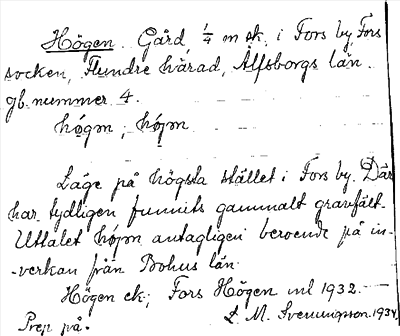 Högen. Gård, 1/4 m ck. i Fors by, Fors
socken, Flundre härad, Älfsborgs län.
gb. nummer 4.
högn ; höjn
Läge på högsta stället i Fors by. Där
har tydligen funnits gammalt gravfält.
Uttalet höjn antagligen beroende på in-
-verkan från Bohus län.
Högen ek; Fors Högen ml 1932. —
Prep på. L. M. Svenungson. 1934